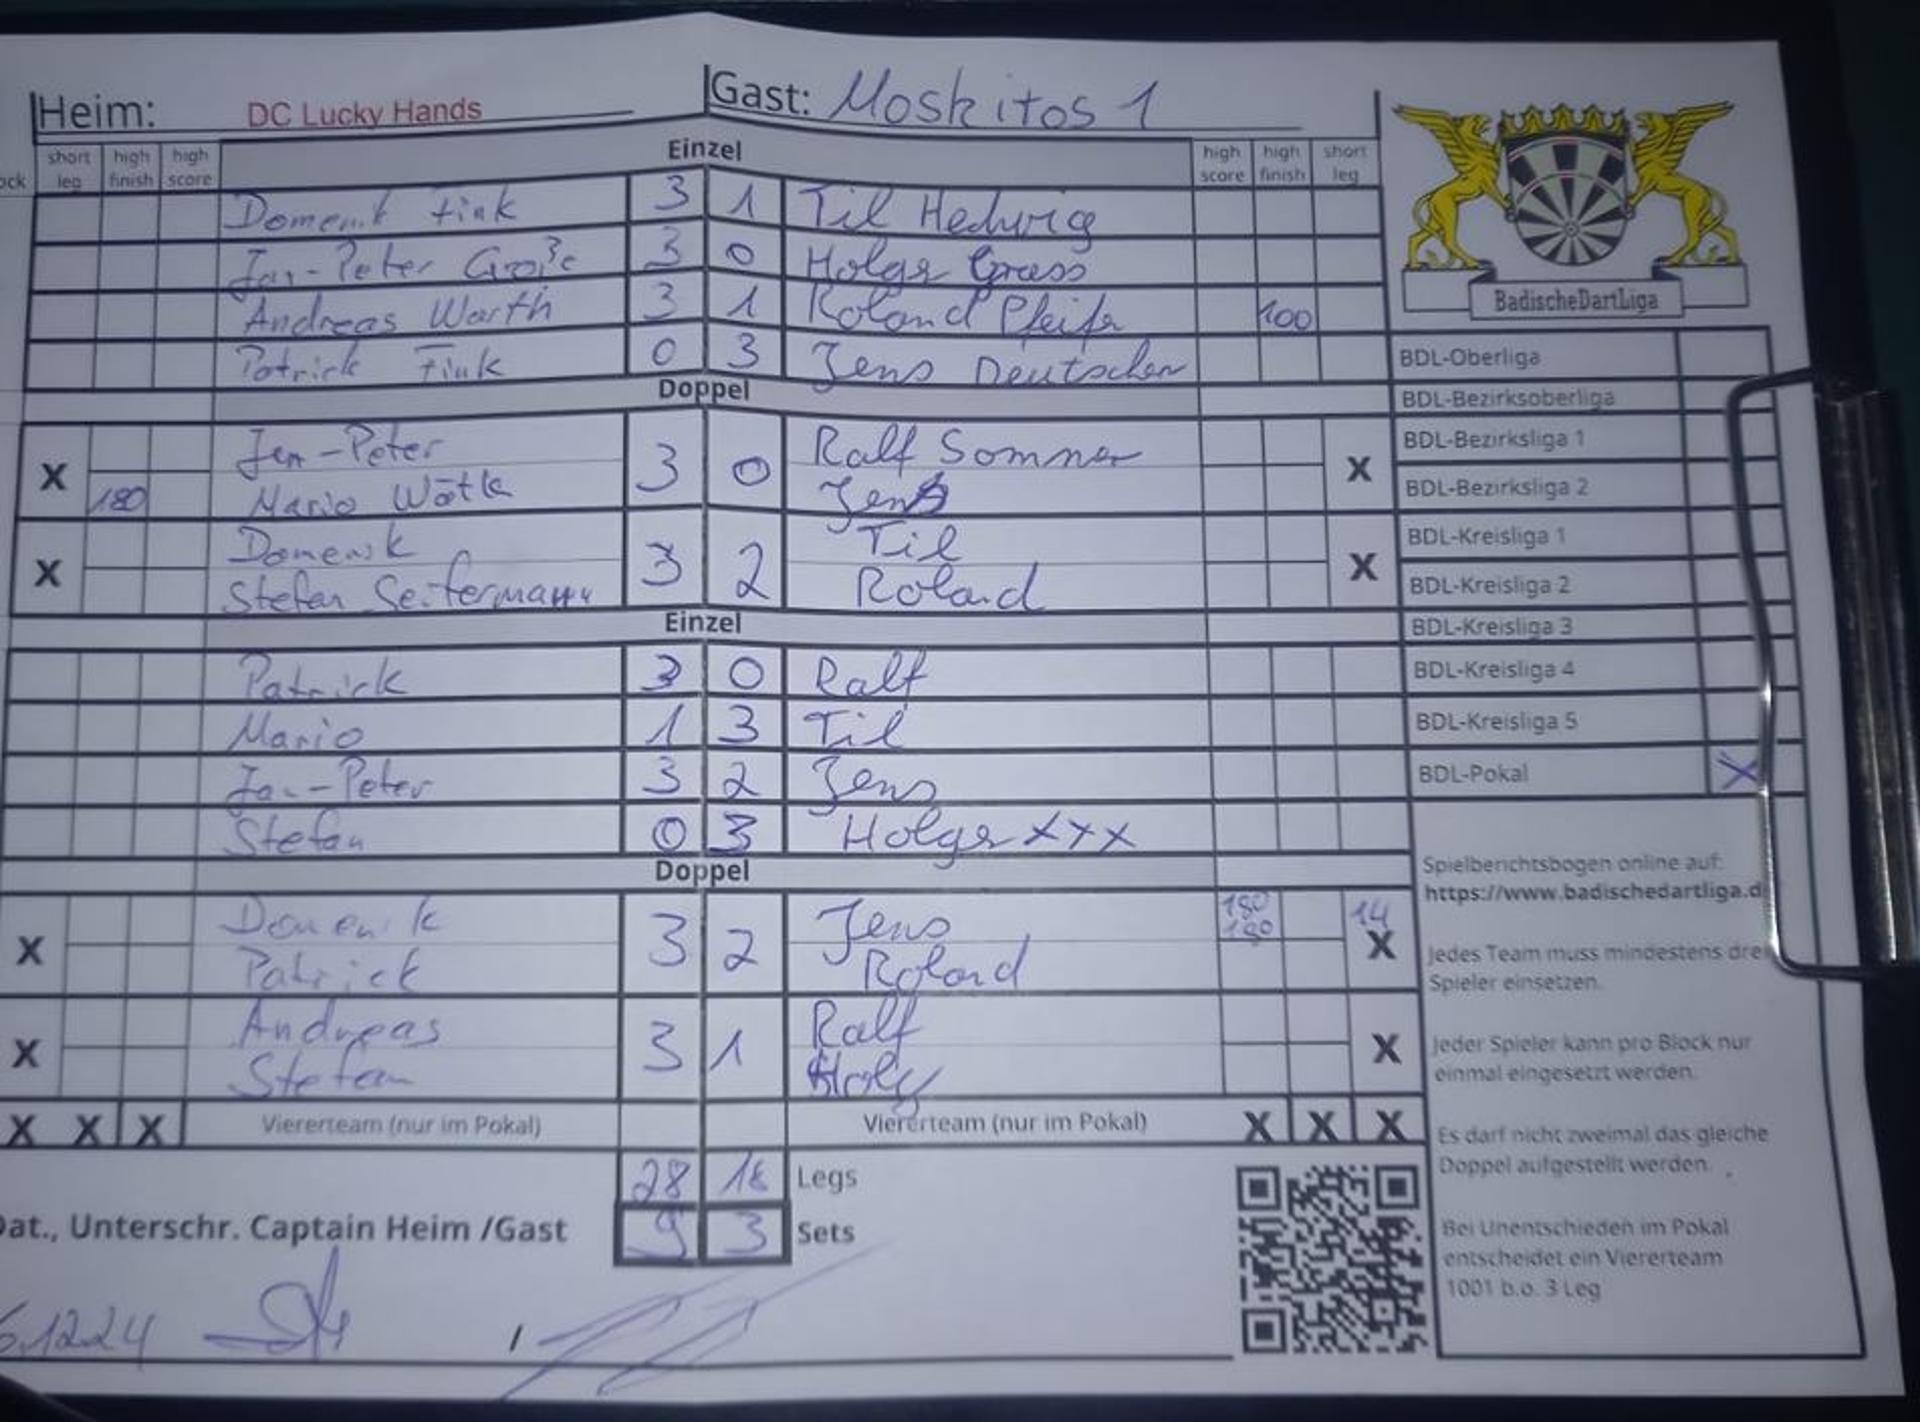 Heim: DC Lucky Hands Gast: Moskitos 1
short leg high finish high score Einzel high score high finish short leg
Domenik Fink 3 1 Til Hedwig
Jan-Peter Große 3 0 Holger Grass
Andreas Warth 3 1 Roland Pfeifer 100
Patrick Fink 0 3 Jens Deutscher
Doppel
Jan-Peter 3 0 Ralf Sommer
X 180 Mario X Jens
Domenik 3 2 Til
X Stefan Seitermann Roland X
Einzel
Patrick 3 0 Ralf
Mario 1 3 Til
Jan-Peter 3 2 Jens
Stefan 0 3 Holger XXX
Doppel
Domenik 3 2 Jens 180 180 14
X Patrick Roland X
Andreas 3 1 Ralf
X Stefan Holg X
X X X Viererteam (nur im Pokal) Viererteam (nur im Pokal) X X X
28 18 Legs
Dat., Unterschr. Captain Heim /Gast 9 3 Sets
6.12.24 /
BadischeDartLiga
BDL-Oberliga
BDL-Bezirksoberliga
BDL-Bezirksliga 1
BDL-Bezirksliga 2
BDL-Kreisliga 1
BDL-Kreisliga 2
BDL-Kreisliga 3
BDL-Kreisliga 4
BDL-Kreisliga 5
BDL-Pokal X
Spielberichtsbogen online auf:
https://www.badischedartliga.d
Jedes Team muss mindestens drei
Spieler einsetzen.
Jeder Spieler kann pro Block nur
einmal eingesetzt werden.
Es darf nicht zweimal das gleiche
Doppel aufgestellt werden.
Bei Unentschieden im Pokal
entscheidet ein Viererteam
1001 b.o. 3 Leg